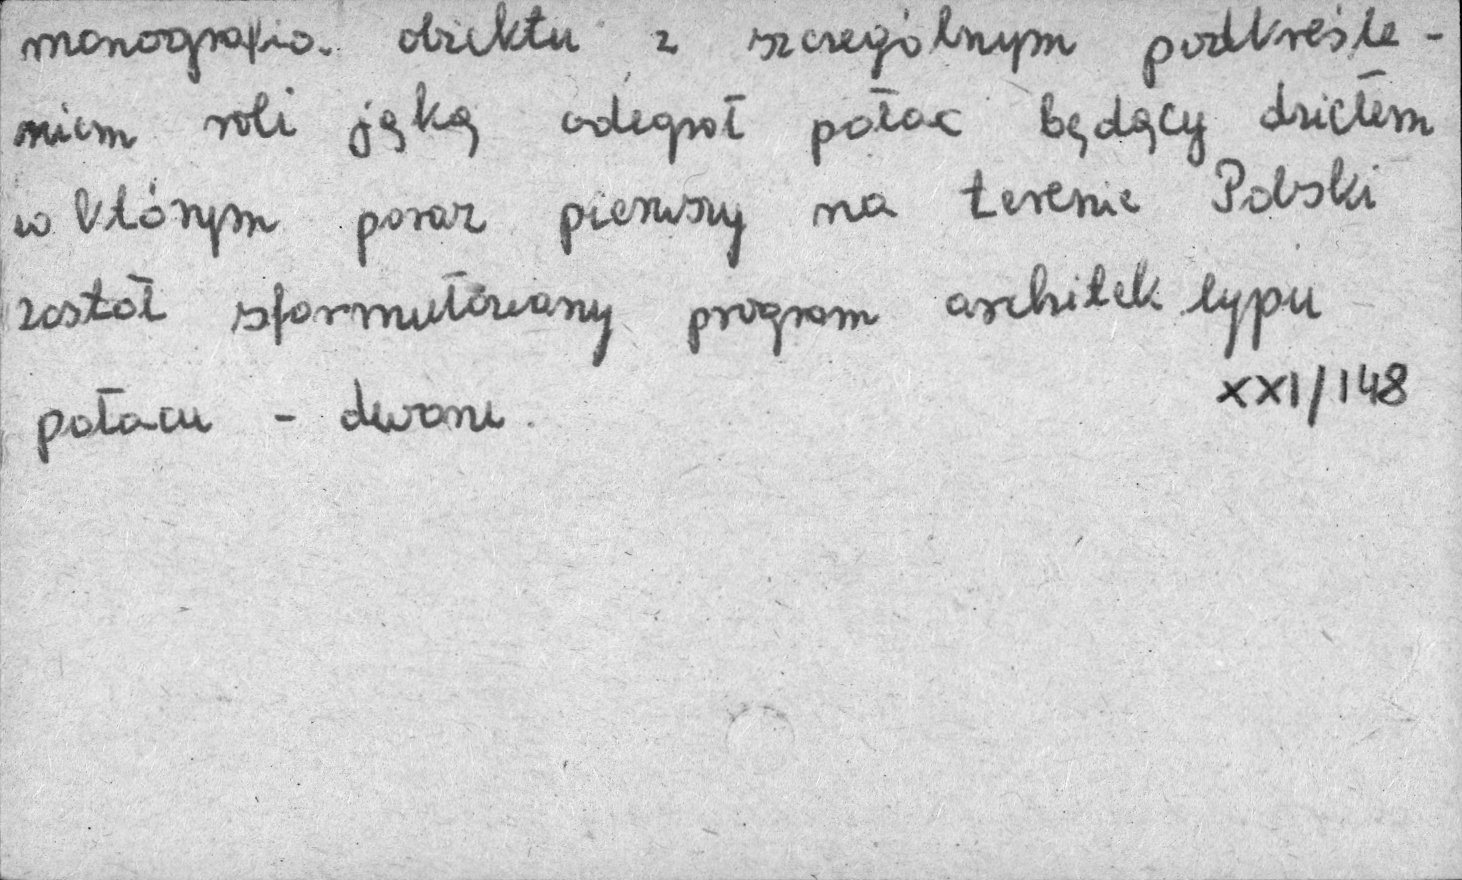 monografia obiektu z szczególnym podkreśle-
niem roli jąką odegrał pałac będący dziełem
w którym poraz pierwszy na terenie Polski
został sformułowany program architek typu
pałacu - dworu.
XXI/148